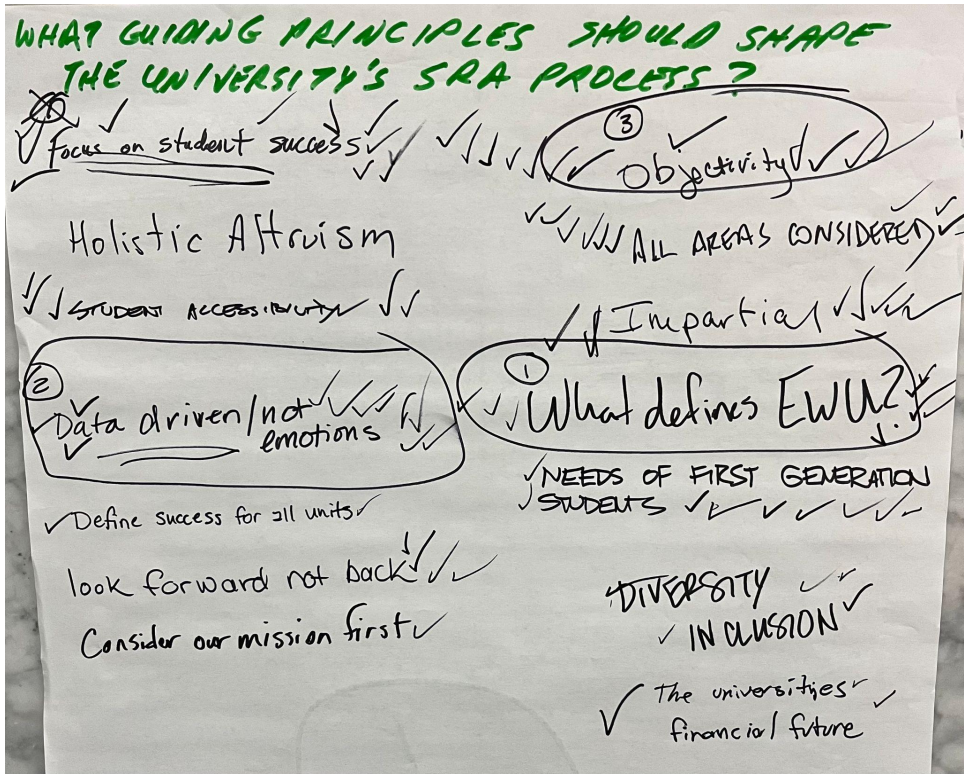 WHAT GUIDING PRINCIPLES SHOULD SHAPE
THE UNIVERSITY'S SRA PROCESS?
Focus on student success
Holistic Altruism
STUDENT ACCESSIBILITY
2
Data driven/not
emotions
Define success for all units
look forward not back
Consider our mission first
3
Objectivity
ALL AREAS CONSIDERED
Impartial
1
What defines EWU?
NEEDS OF FIRST GENERATION
STUDENTS
DIVERSITY
INCLUSION
The universities
financial future